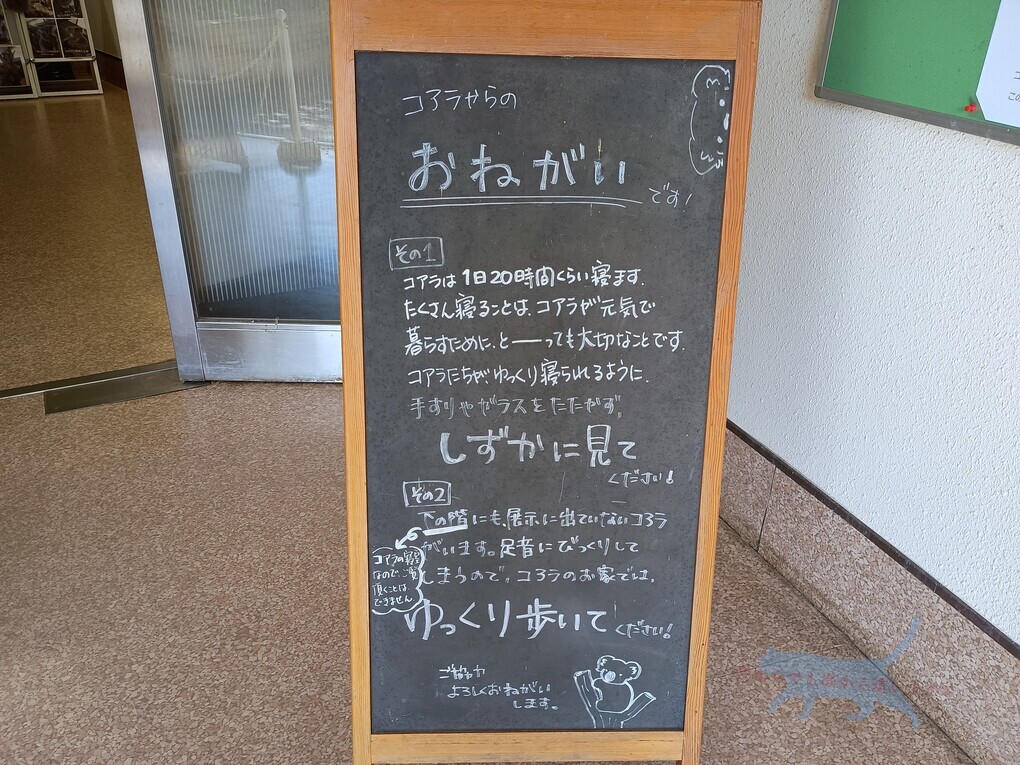 コアラからの
おねがい
です!
その1
コアラは1日20時間くらい寝ます.
たくさん寝ることは、コアラが元気で
暮らすために、と──っても大切なことです.
コアラたちが、ゆっくり寝られるように、
手すりやガラスをたたかず、
しずかに見て
ください!
その2
下の階にも、展示に出ていないコアラ
がいます。足音にびっくりして
しまうので、コアラのお家では、
ゆっくり歩いて
ください!
コアラの寝室
なので、ご覧
頂くことは
できません.
ご協力
よろしくおねがい
します。